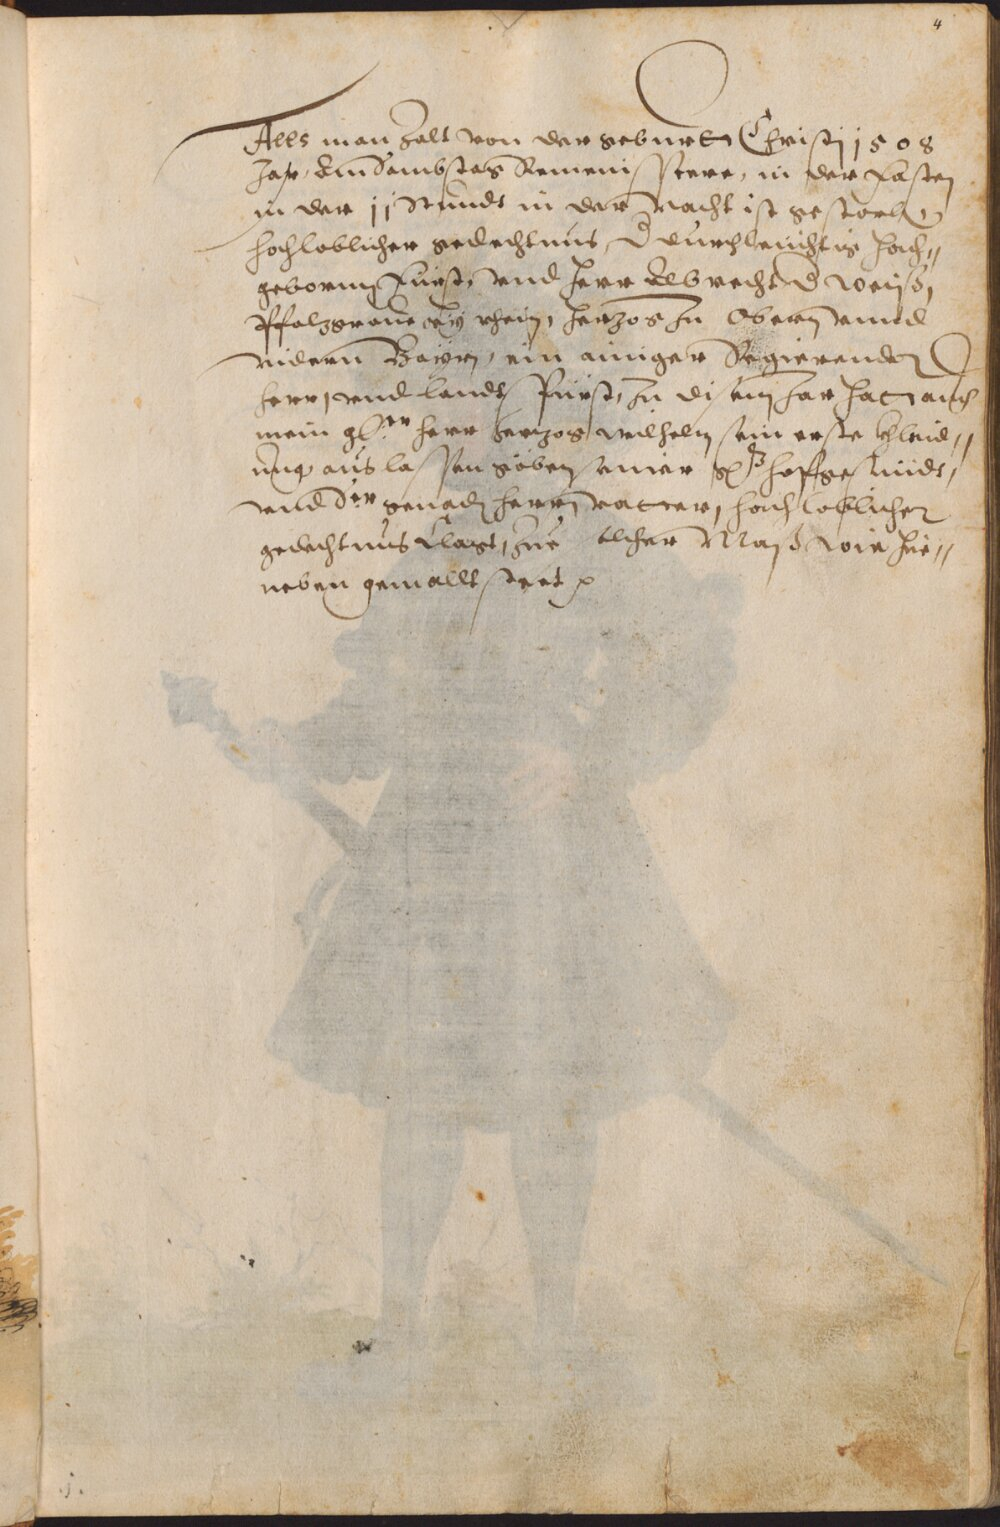 4
Alls man zalt von der geburtt Christj 1508
Jar, Am Sambstag Reminiscere, in der fasten
in der 11 Stundt in der Nacht ist gestorben
hochloblicher gedechtnus, D durchleuchtig hoch„
geborn Fürst, vnd herr Albrecht D weiß,
Pfalzgraue bey rhein, herzog zu Obern vnnd
nidern Bayrn, ein ainiger Regierender
herr, vnd Landts Fürst, zu disem Jar hatt auch
mein gl:er herr herzog wilhelm sein erste khlaid„
ung auslassen geben seiner hoffgesindt,
vnd genadn herrn vatter, hochloblicher
gedechtnus klagt, Inn solcher Maß wie hie„
neben gemallt steet
j.